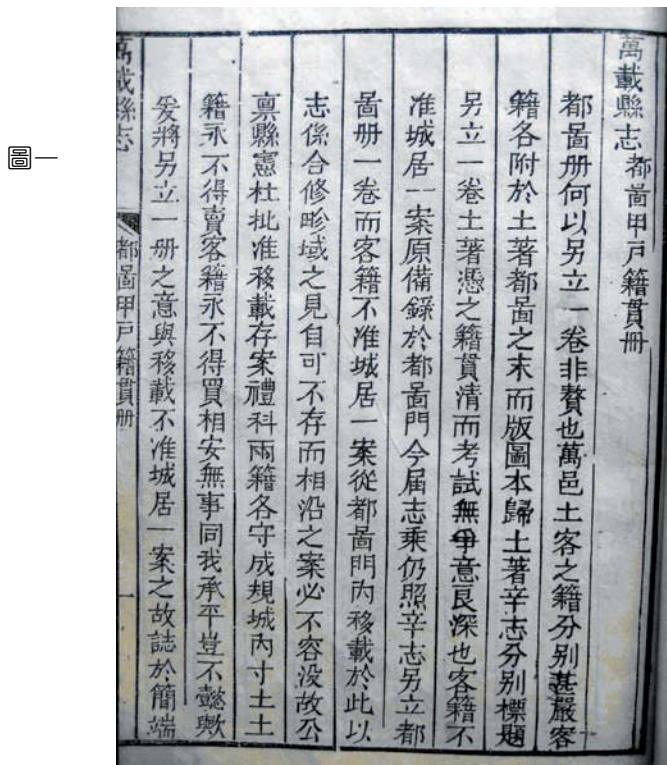 圖一
萬載縣志 都啚甲戸籍貫册
都啚册何以另立一卷非贅也萬邑土客之籍分别甚嚴客
籍各附於土著都啚之末而版圖本歸土著辛志分别標題
另立一卷土著憑之籍貫清而考試無爭意良深也客籍不
准城居一案原備錄於都啚門今届志乘仍照辛志另立都
啚册一卷而客籍不准城居一案從都啚門内移載於此以
志係合修畛域之見自可不存而相沿之案必不容没故公
禀縣憲杜批准移載存案禮科兩籍各守成規城内寸土土
籍永不得賣客籍永不得買相安無事同我承平豈不懿歟
爰將另立一册之意與移載不准城居一案之故誌於簡端
萬載縣志 都啚甲戸籍貫册 一